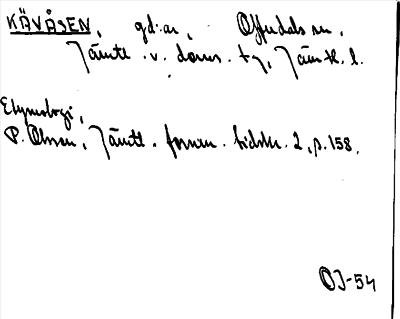 KÄVÅSEN, gd:ar, Offerdals sn,
Jämtl. v. doms. tg, Jämtl. l.
Etymologi,
P. Olsson, Jämtl. fornm. tidskr. 2, p. 158.
OJ-54